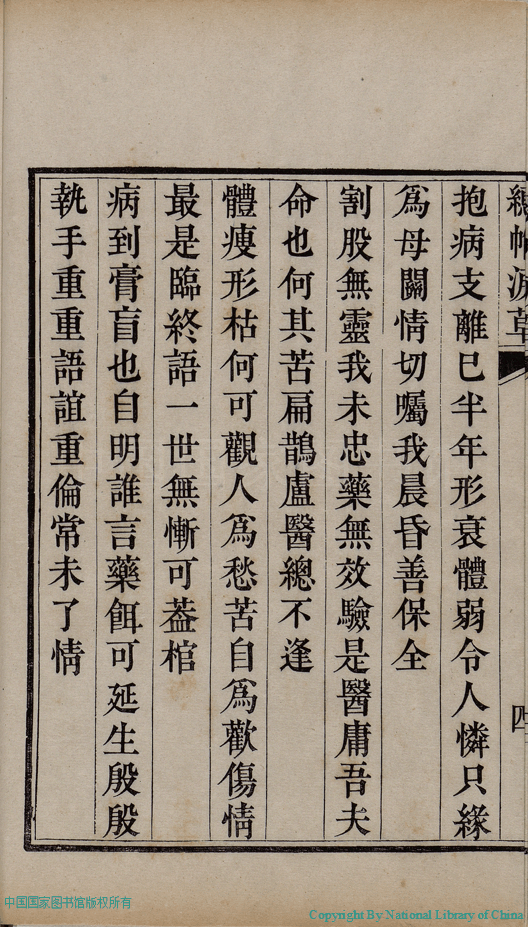 繐帷淚草
四
抱病支離已半年形衰體弱令人憐只緣
爲母關情切囑我晨昏善保全
割股無靈我未忠藥無效驗是醫庸吾夫
命也何其苦扁鵲盧醫總不逢
體瘦形枯何可觀人爲愁苦自爲歡傷情
最是臨終語一世無慚可葢棺
病到膏盲也自明誰言藥餌可延生殷殷
執手重重語誼重倫常未了情
中国国家图书馆版权所有
Copyright By National Library of China